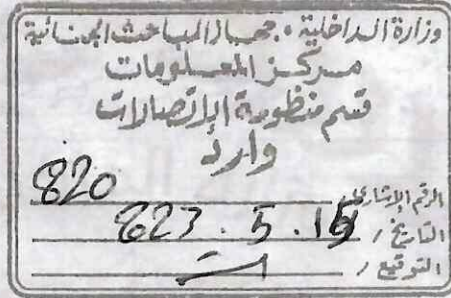 وزارة الداخلية . جهاز المباحث الجنائية
مركز المعلومات
قسم منظومة الإتصالات
وارد
الرقم الإشاري 820
التاريخ / 823 . 5 . 15
التوقيع /